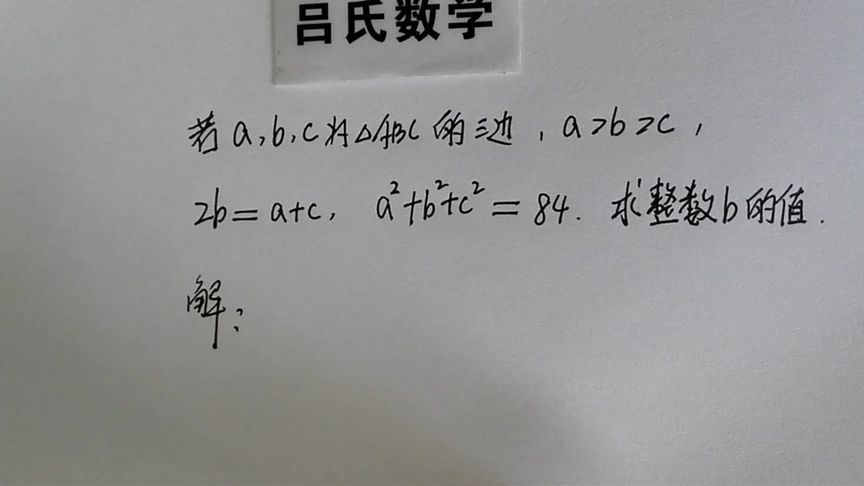 吕氏数学
若a,b,c为△ABC的三边,a>b>c,
2b=a+c, a²+b²+c²=84. 求整数b的值.
解: